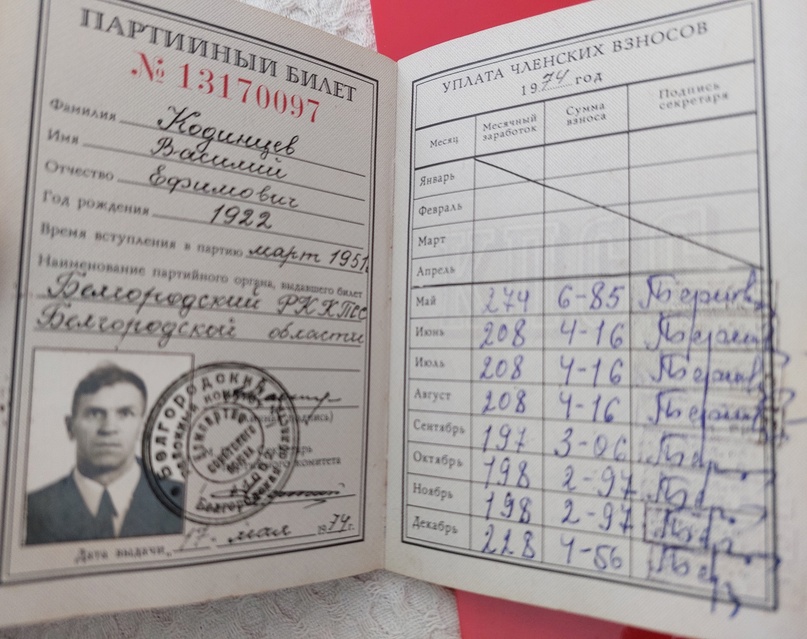 ПАРТИЙНЫЙ БИЛЕТ
№ 13170097
Фамилия Кодинцев
Имя Василий
Отчество Ефимович
Год рождения 1922
Время вступления в партию март 1951г.
Наименование партийного органа, выдавшего билет
Белгородский РК КПСС
Белгородской области
Дата выдачи 17 мая 1974 г.
УПЛАТА ЧЛЕНСКИХ ВЗНОСОВ
1974 год
Месяц Месячный заработок Сумма взноса Подпись секретаря
Январь
Февраль
Март
Апрель
Май 274 6-85
Июнь 208 4-16
Июль 208 4-16
Август 208 4-16
Сентябрь 197 3-06
Октябрь 198 2-97
Ноябрь 198 2-97
Декабрь 228 4-56